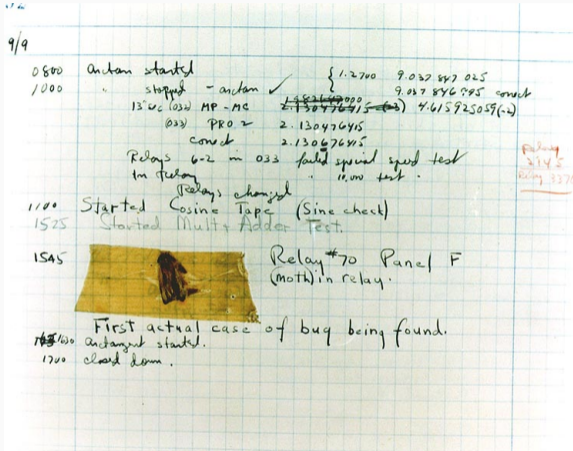 9/9
0800 arctan started
1000 " stopped - arctan ✓
{ 1.2700 9.037 847 025
9.037 846 995 correct
13"uc (032) MP-MC 2.130476415 4.615925059(-2)
(033) PRO 2 2.130476415
correct 2.130676415
Relays 6-2 in 033 failed special speed test
In Relay " 10,000 test.
Relays changed
1100 Started Cosine Tape (Sine check)
1525 Started Mult+Adder Test.
1545 Relay #70 Panel F
(moth) in relay.
First actual case of bug being found.
1630 arctangent started.
1700 closed down.
Relay
2145
Relay 3370